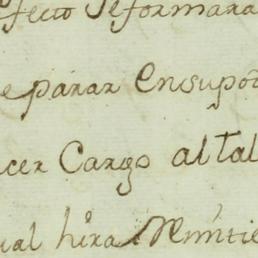 fecto Se formara
e parar Ensupo
cer Cargo al tal
ual hira